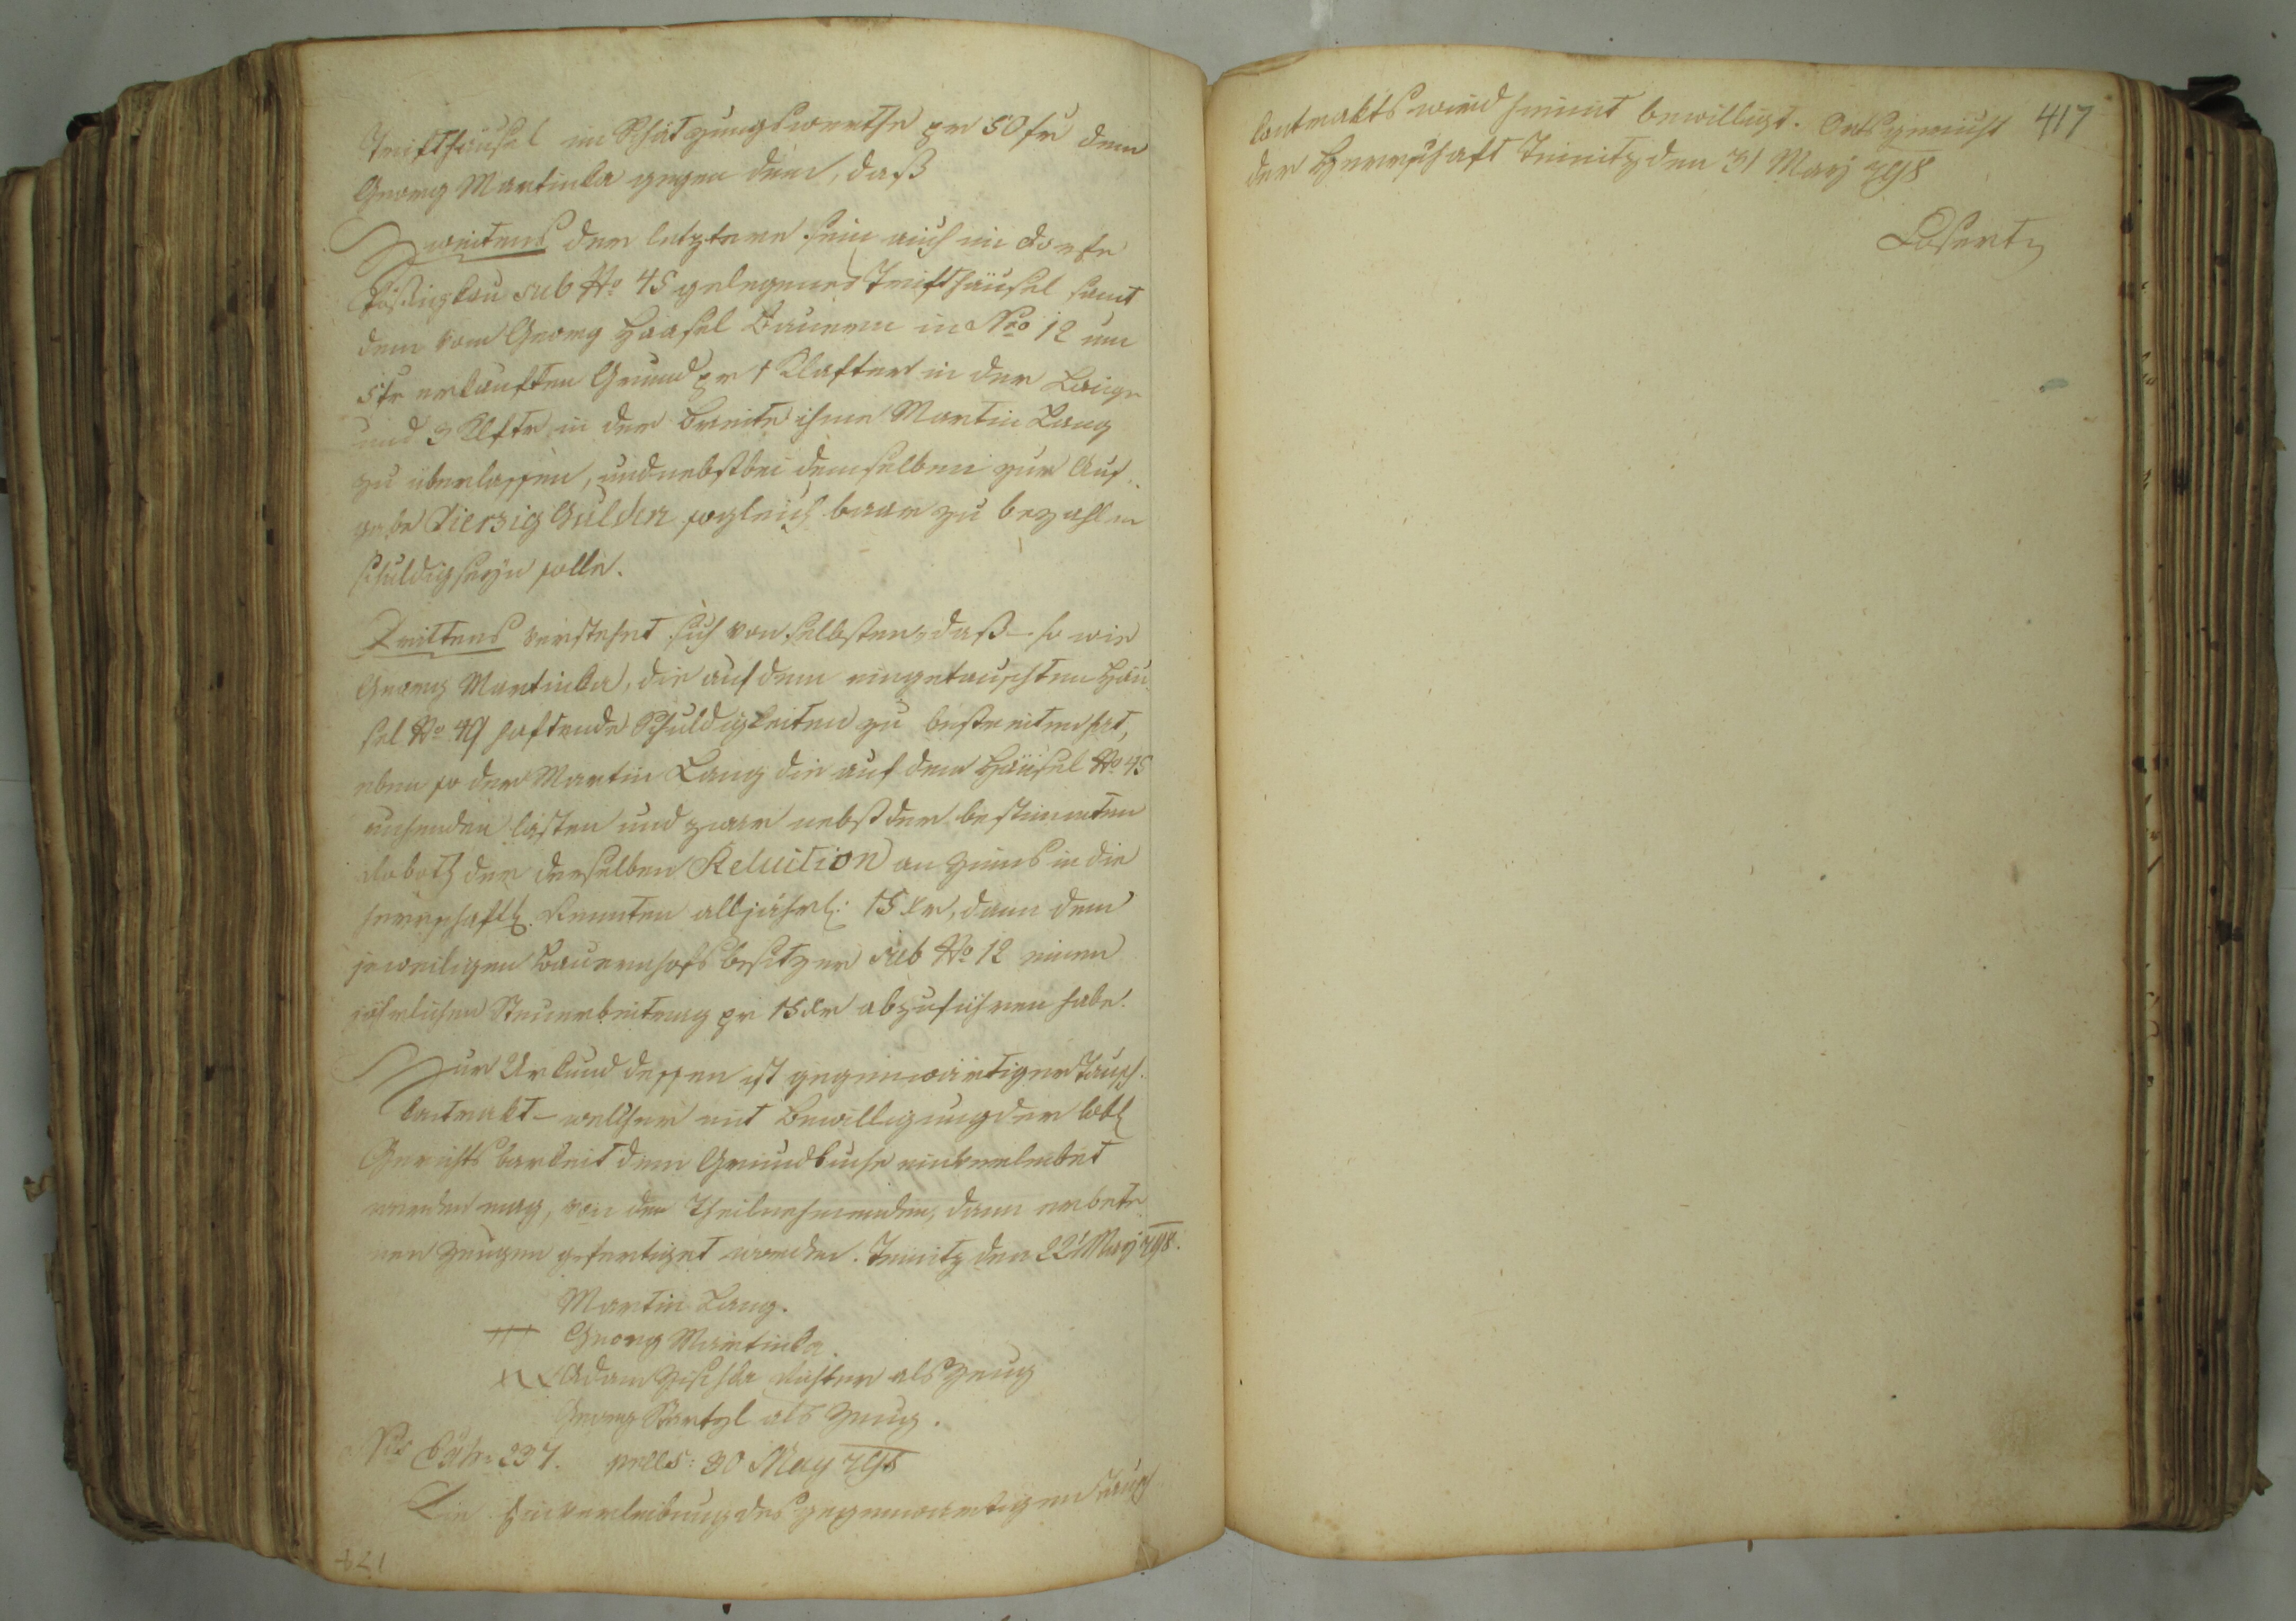 Trifthäusel im Schätzungswerthe pr 50 fr dem
Georg Martinka gegen dem, daß
Zweitens der letztere sein auch im Dorfe
sub No 45 gelegenes Trifthäusel samt
dem vom Georg Haasel Bauern in Nro 12 um
5 fr erkauften Grund pr 1 Klafter in der Länge
und 3 Klftr in der Breite ihme Martin Lang
zu überlassen, und nebstbei demselben zur Auf-
gabe Vierzig Gulden sogleich baar zu bezahlen
schuldig seyn solle.
Drittens verstehet sich von selbsten, daß – so wie
Georg Martinka, die auf dem eingetauschten Häu-
sel No 49 haftende Schuldigkeiten zu bestreiten hat,
eben so der Martin Lang die auf dem Häusel No 45
ruhenden lasten und zwar nebst der bestimmten
Roboth der derselben Reluition an Zinns in die
herrschaftl. Rennten alljährl: 15 Xr, dann dem
jeweiligen Bauernhofs besitzer sub No 12 einen
jährlichen Steuerbeitrag pr 15 Xr abzuführen habe.
Zur Urkund dessen ist gegenwärtiger Tausch-
kontrakt – welcher mit Bewilligung der löbl
Gerichtsbarkeit dem Grundbuche einverleibet
werden mag, von den Theilnehmenden, dann erbete-
nen Zeugen gefertiget worden. Trinitz den 22t May 798.
Martin Lang.
+++ Georg Martinka.
xxx Adam Richter als Zeug
Georg als Zeug.
No Exh: 237. 30 May 798
Die Einverleibung des gegenwärtigen Tausch
421
417
kontrakts wird hiemit bewilligt. Ortsgericht
der Herrschaft Trinitz den 31 May 798
Losert